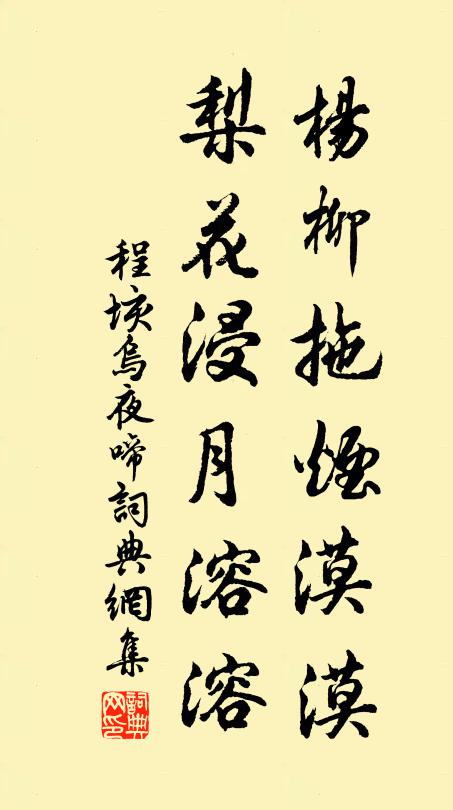 楊柳拖煙漠漠
梨花浸月溶溶
程垓烏夜啼詞典網集
詞典
网印